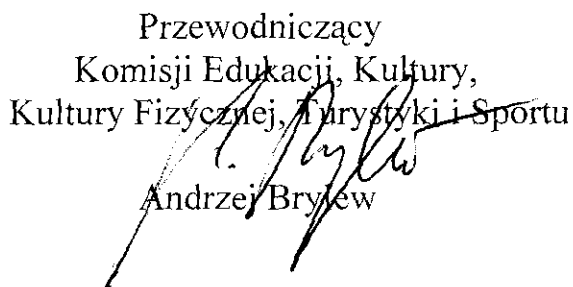 Przewodniczący
Komisji Edukacji, Kultury,
Kultury Fizycznej, Turystyki i Sportu
Andrzej Brylew